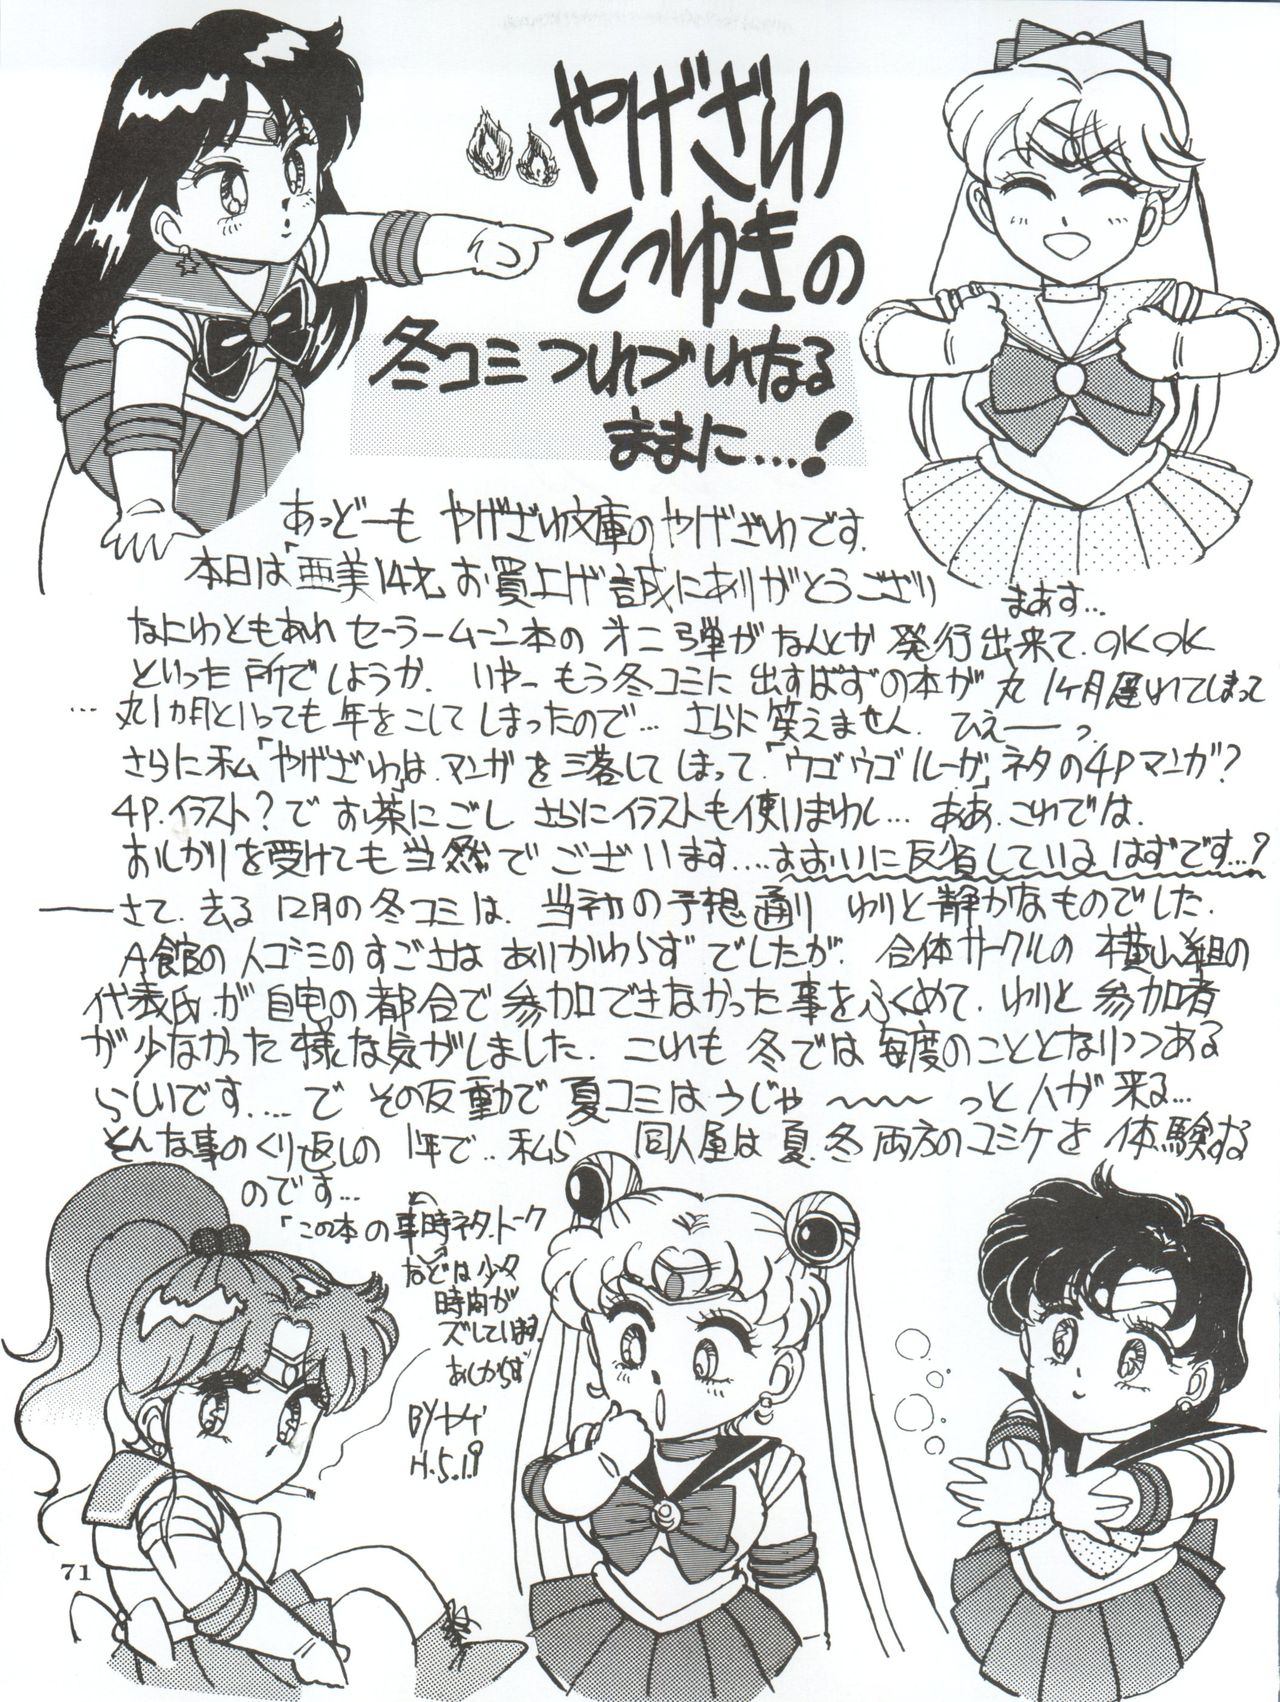 やげざわ
てつゆきの
冬コミつれづれなる
ままに…!
あっどーも やげざわ文庫のやげざわです.
本日は「亜美14才」お買上げ誠にありがとうござり
まあす…
なにわともあれ セーラームーン本の オニ弾がなんとか 発行出来て.OKOK
といった所でしょうか. いやー もう冬コミに 出すはずの本が 丸1ヶ月遅れてしまって
…丸1カ月といっても 年をこしてしまったので… さらに笑えません. ひえーーっ.
さらに私「やげざわ」は.マンガを 三落してしまって.「ウゴウゴルーガ」ネタの4Pマンガ?
4P.イラスト?で お茶にごし さらにイラストも使いまわし… ああ.これでは.
おしかりを受けても当然でございます….おおいに反省しているはずです…?
――さて.去る12月の冬コミは.当初の予想通り わりと静かなものでした.
A館の人ゴミのすごさは ありかわらずでしたが. 合体サークルの 横山組の
代表氏.が 自宅の都合で参加できなかった事をふくめて.わりと 参加者
が少なかった様な気がしました. これも 冬では毎度のこととなりつつある
らしいです.… で その反動で 夏コミはうじゃ〜〜〜〜っと人が 来る…
そんな事のくり返しの 1年で‥私ら 同人屋は 夏.冬 両方のコミケを 体験する
のです…
「この本の事時ネタ.トーク
などは少々
時間が
ズレています.
あしからず
BYヤゲ
H.5.1.9
71